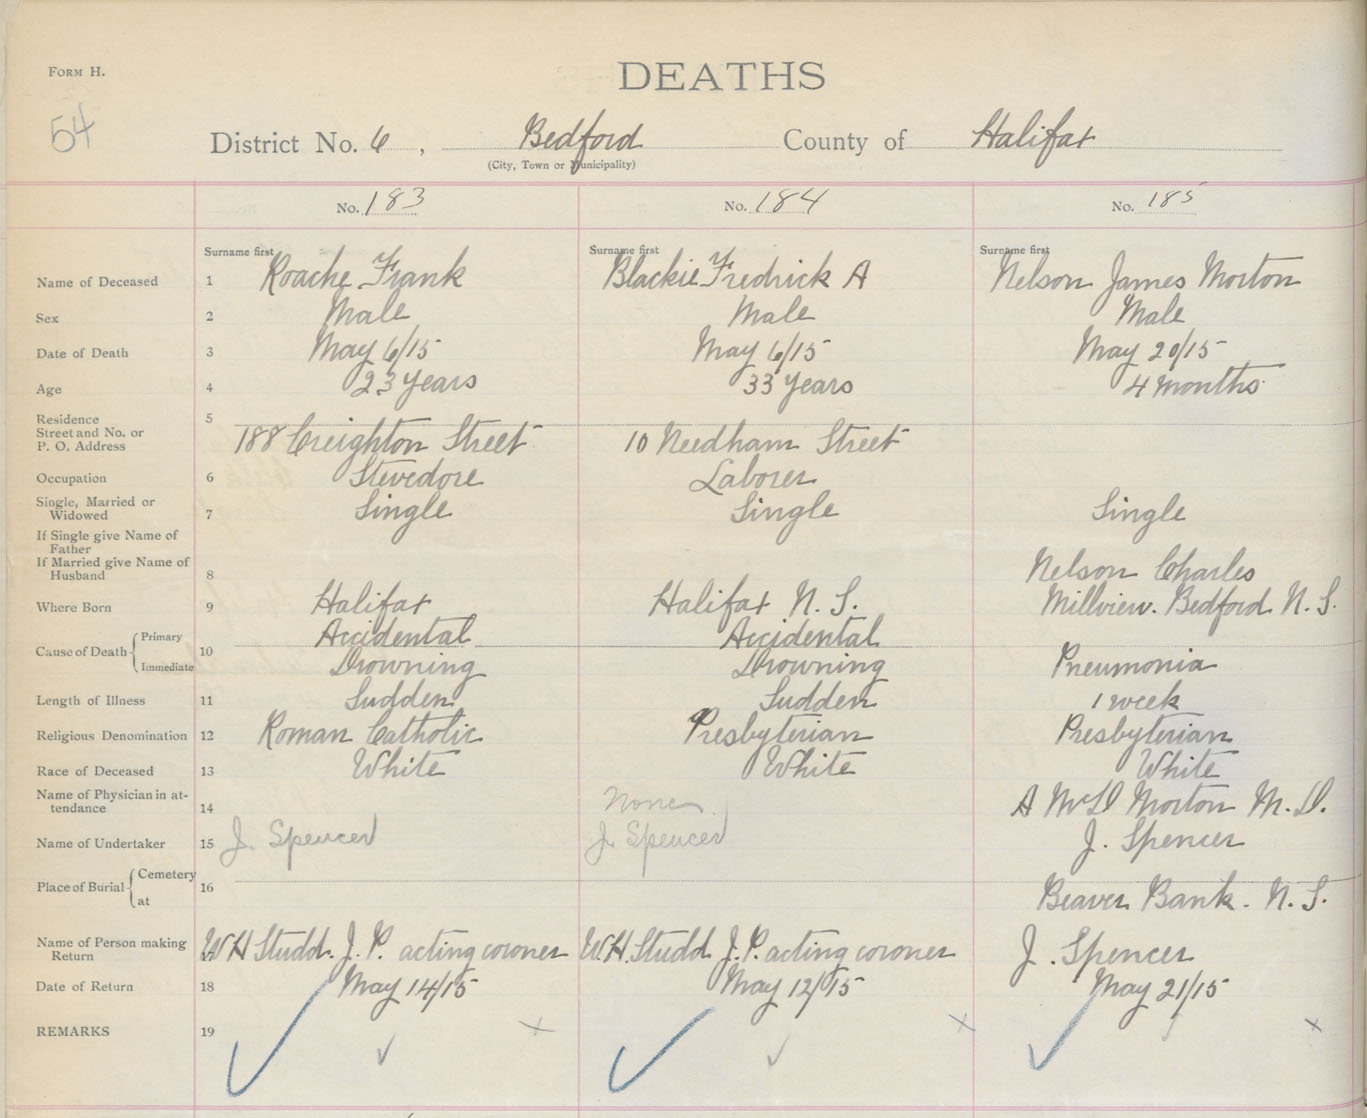 FORM H.
DEATHS
54
District No. 6, Bedford County of Halifax
(City, Town or Municipality)
No. 183 No. 184 No. 185
Surname first Surname first Surname first
Name of Deceased 1 Roache Frank Blackie Fredrick A Nelson James Morton
Sex 2 Male Male Male
Date of Death 3 May 6/15 May 6/15 May 20/15
Age 4 23 years 33 years 4 months
Residence 5
Street and No. or
P. O. Address 188 Creighton Street 10 Needham Street
Occupation 6 Stevedore Laborer
Single, Married or
Widowed 7 Single Single Single
If Single give Name of
Father
If Married give Name of
Husband 8 Nelson Charles
Where Born 9 Halifax Halifax N. S. Millview. Bedford N. S.
Cause of Death { Primary Accidental Accidental
10
Immediate Drowning Drowning Pneumonia
Length of Illness 11 Sudden Sudden 1 week
Religious Denomination 12 Roman Catholic Presbyterian Presbyterian
Race of Deceased 13 White White White
Name of Physician in at-
tendance 14 None A McD Morton M. D.
Name of Undertaker 15 J. Spencer J. Spencer J. Spencer
Place of Burial { Cemetery
16
at Beaver Bank. N. S.
Name of Person making
Return 17 W H Studd. J. P. acting coroner W. H. Studd J. P. acting coroner J. Spencer
Date of Return 18 May 14/15 May 12/15 May 21/15
REMARKS 19